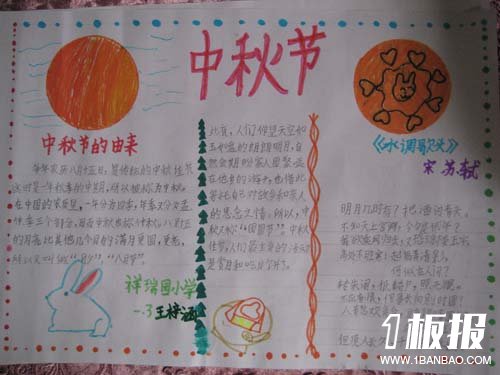 中秋节
中秋节的由来
每年农历八月十五日,是传统的中秋佳节
这时是一年秋季的中期,所以被称为中秋。
在中国的农历里,一年分为四季,每季又分为孟
仲季三个部分,因而中秋也称仲秋。八月十五
的月亮比其他几个月的满月更圆,更亮,
所以又叫做“月夕”,“八月节”。
祥瑞园小学
一.3王梓涵
此夜,人们仰望天空如
玉如盘的朗朗明月,自
然会期盼家人团聚。远
在他乡的游子,也借此
寄托自己对故乡和亲人
的思念之情。所以,中
秋又称“团圆节”。中秋
佳节,人们最主要的活动
是赏月和吃月饼了。
《水调歌头》
宋 苏轼
明月几时有?把酒问青天。
不知天上宫阙,今夕是何年?
我欲乘风归去,又恐琼楼玉宇,
高处不胜寒!起舞弄清影,
何似在人间?
转朱阁,低绮户,照无眠。
不应有恨,何事长向别时圆?
人有悲欢
但愿人
1板报
WWW.1BANBAO.COM